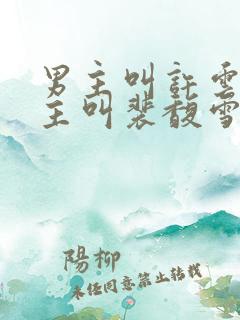 男主叫許雲
主叫裴馥雪
陽柳
未經同意禁止轉載